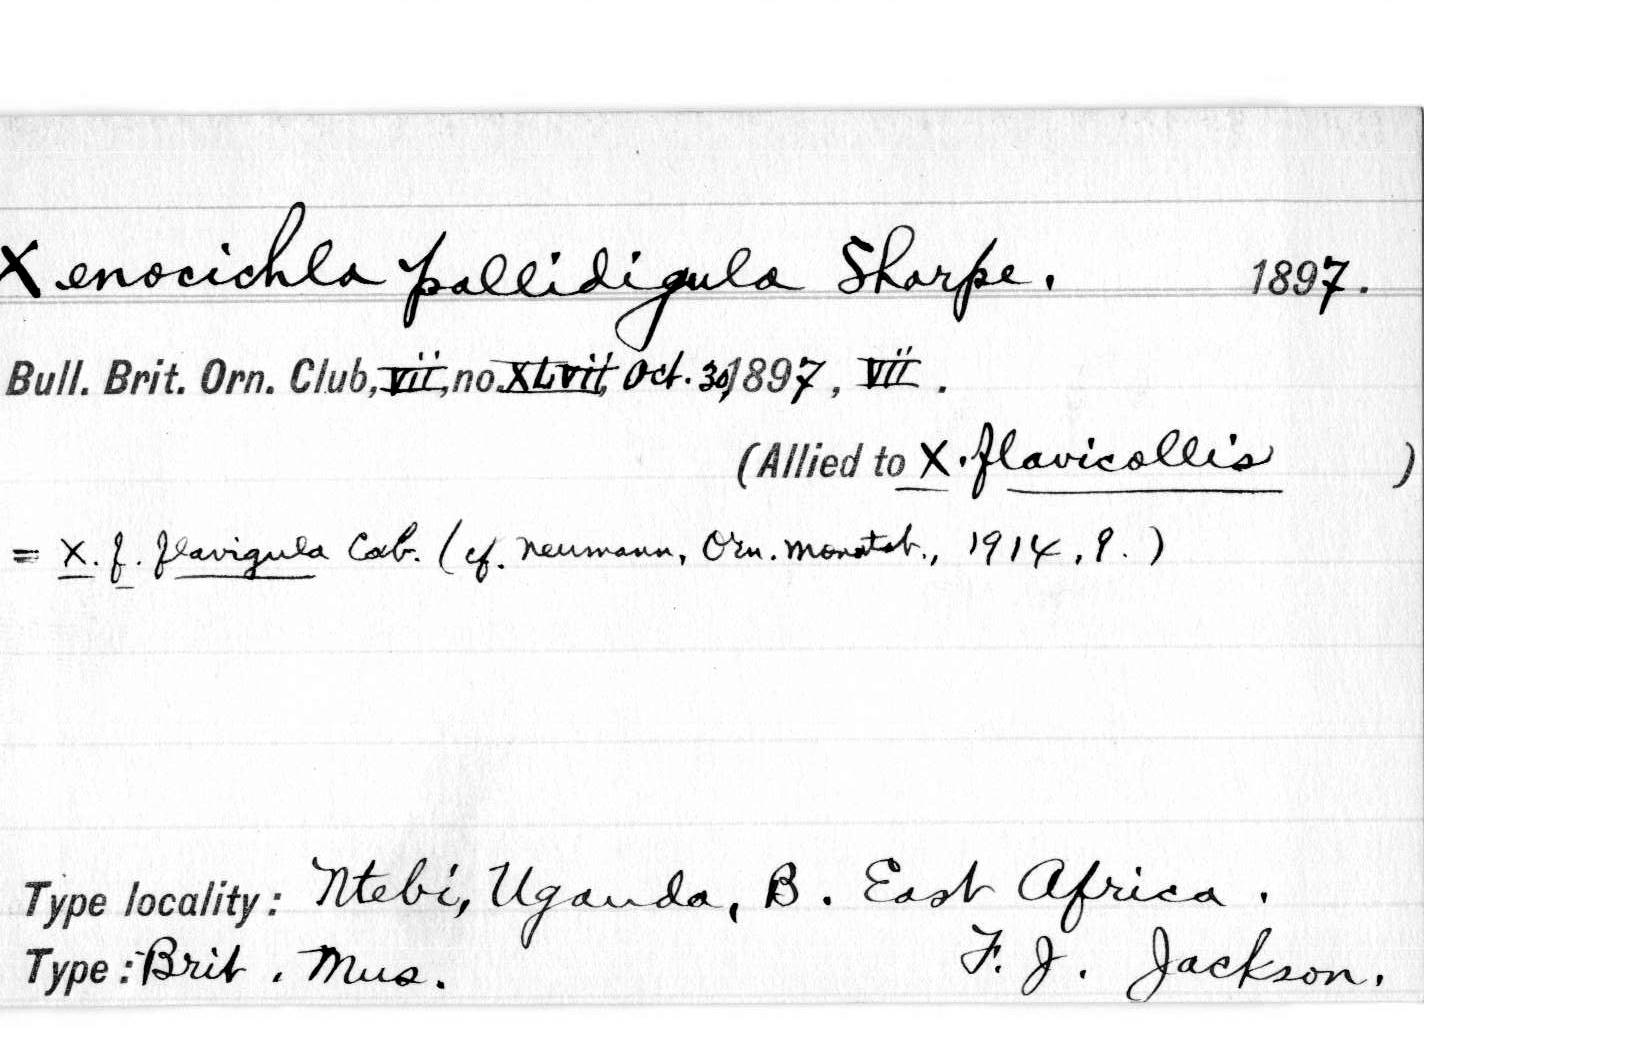 Xenocichla pallidigula Sharpe. 1897.
Bull. Brit. Orn. Club, vii, no. XLvii, Oct. 30, 1897, vii.
(Allied to X. flavicollis )
= X. f. flavigula Cab. (cf. Neumann, Orn. Monatsb., 1914, 9.)
Type locality: Ntebi, Uganda, B. East Africa.
Type: Brit. Mus. F. J. Jackson.